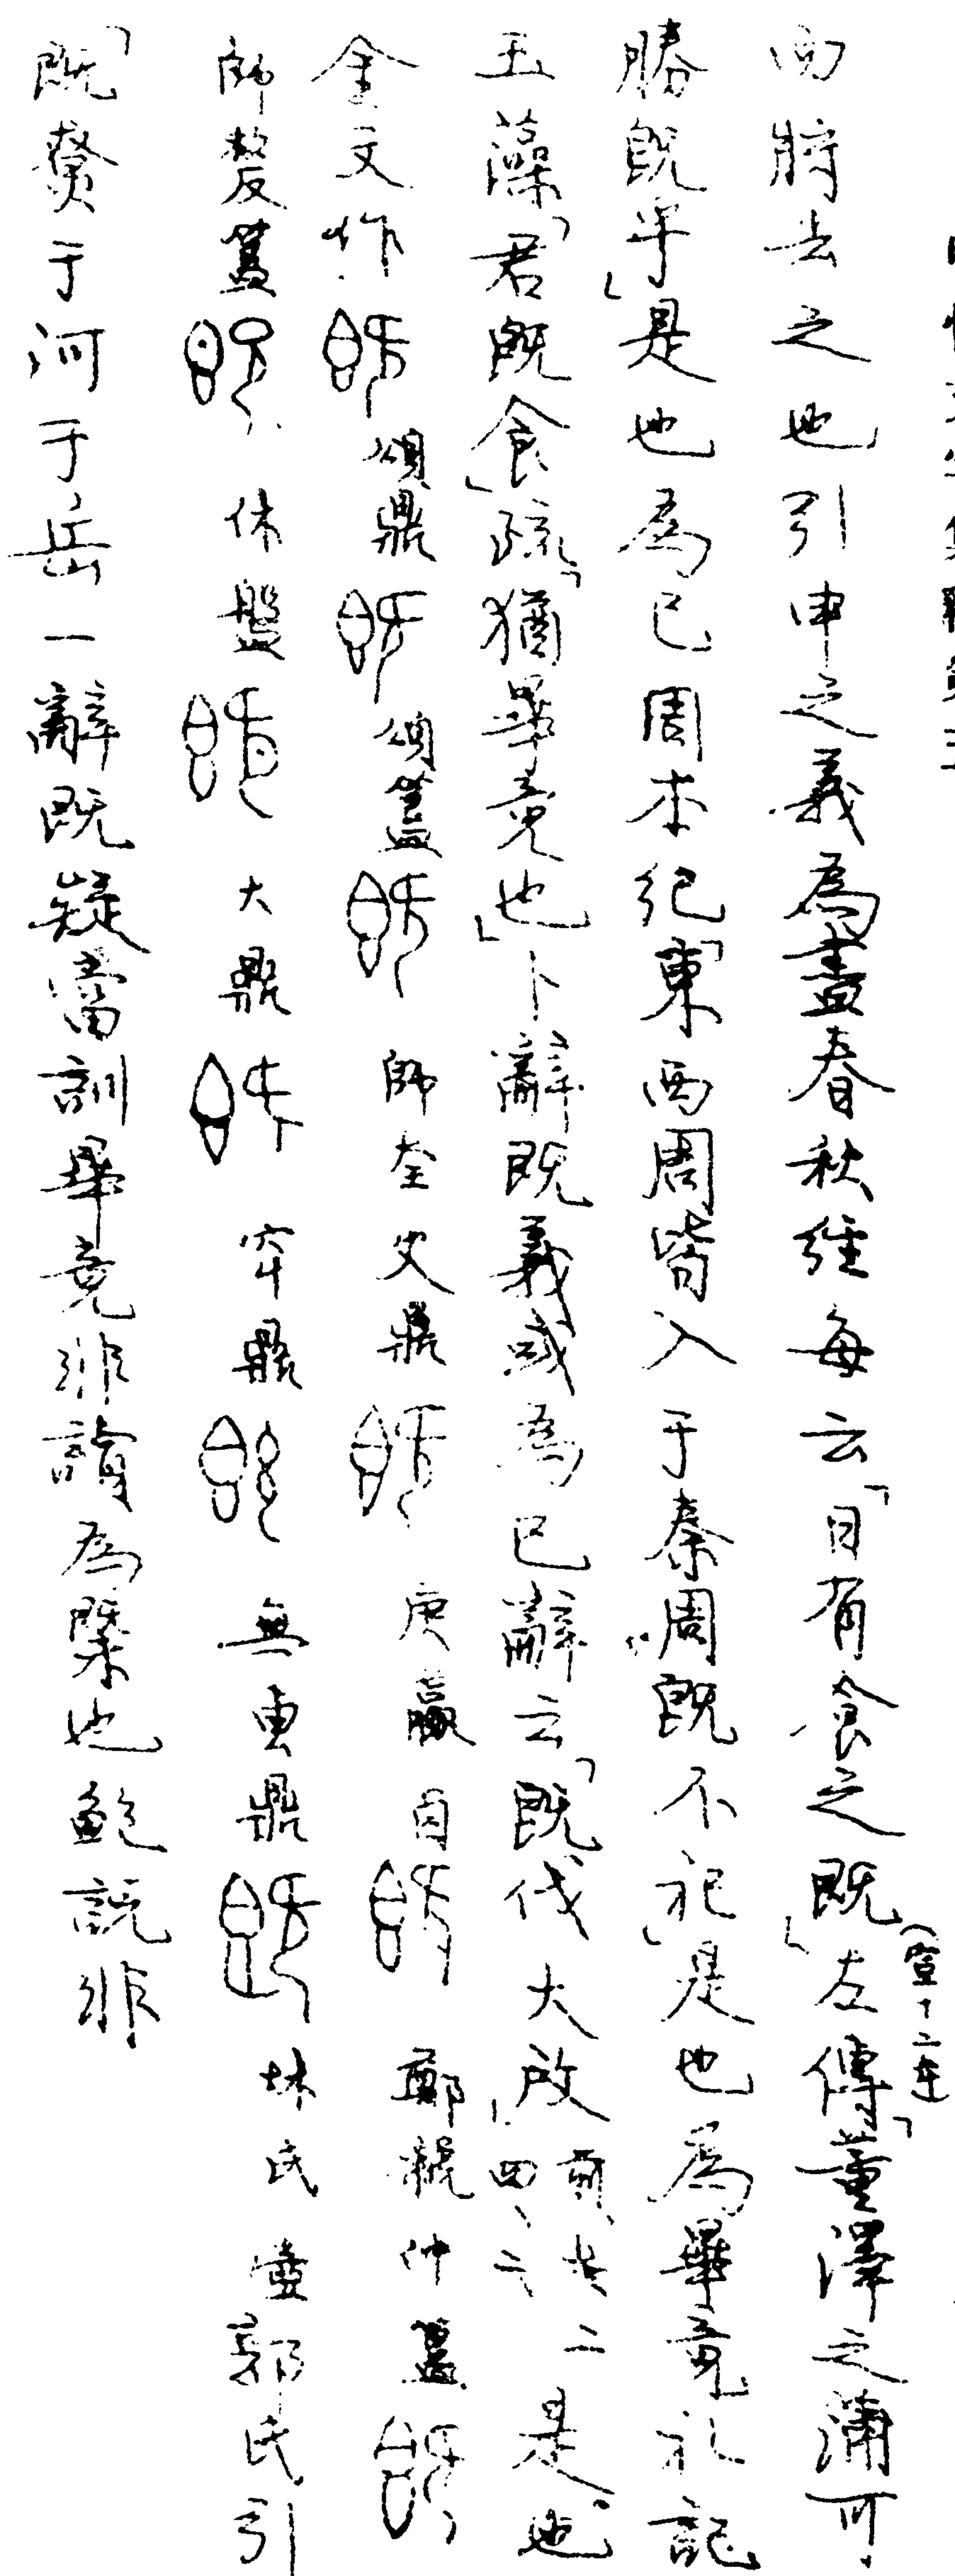 而將去之也引申之義為盡春秋經每云「日有食之既」左傳(宣十二年「董澤之蒲可
勝既乎」是也為已周本紀「東西周皆入于秦周既不祀」是也為畢竟礼記
玉藻「君既食」疏「猶畢竟也」卜辭既義或為已辭云「既伐大啟」前、七、四、二是也
金文作 頌鼎 頌簋 師 史鼎 庚嬴卣 鄭虢仲簋
師嫠簋 休盤 大鼎 鼎 無叀鼎 林氏壺郭氏引
「既燎于河于岳一辭既疑當訓畢竟非讀為槩也鮑説非